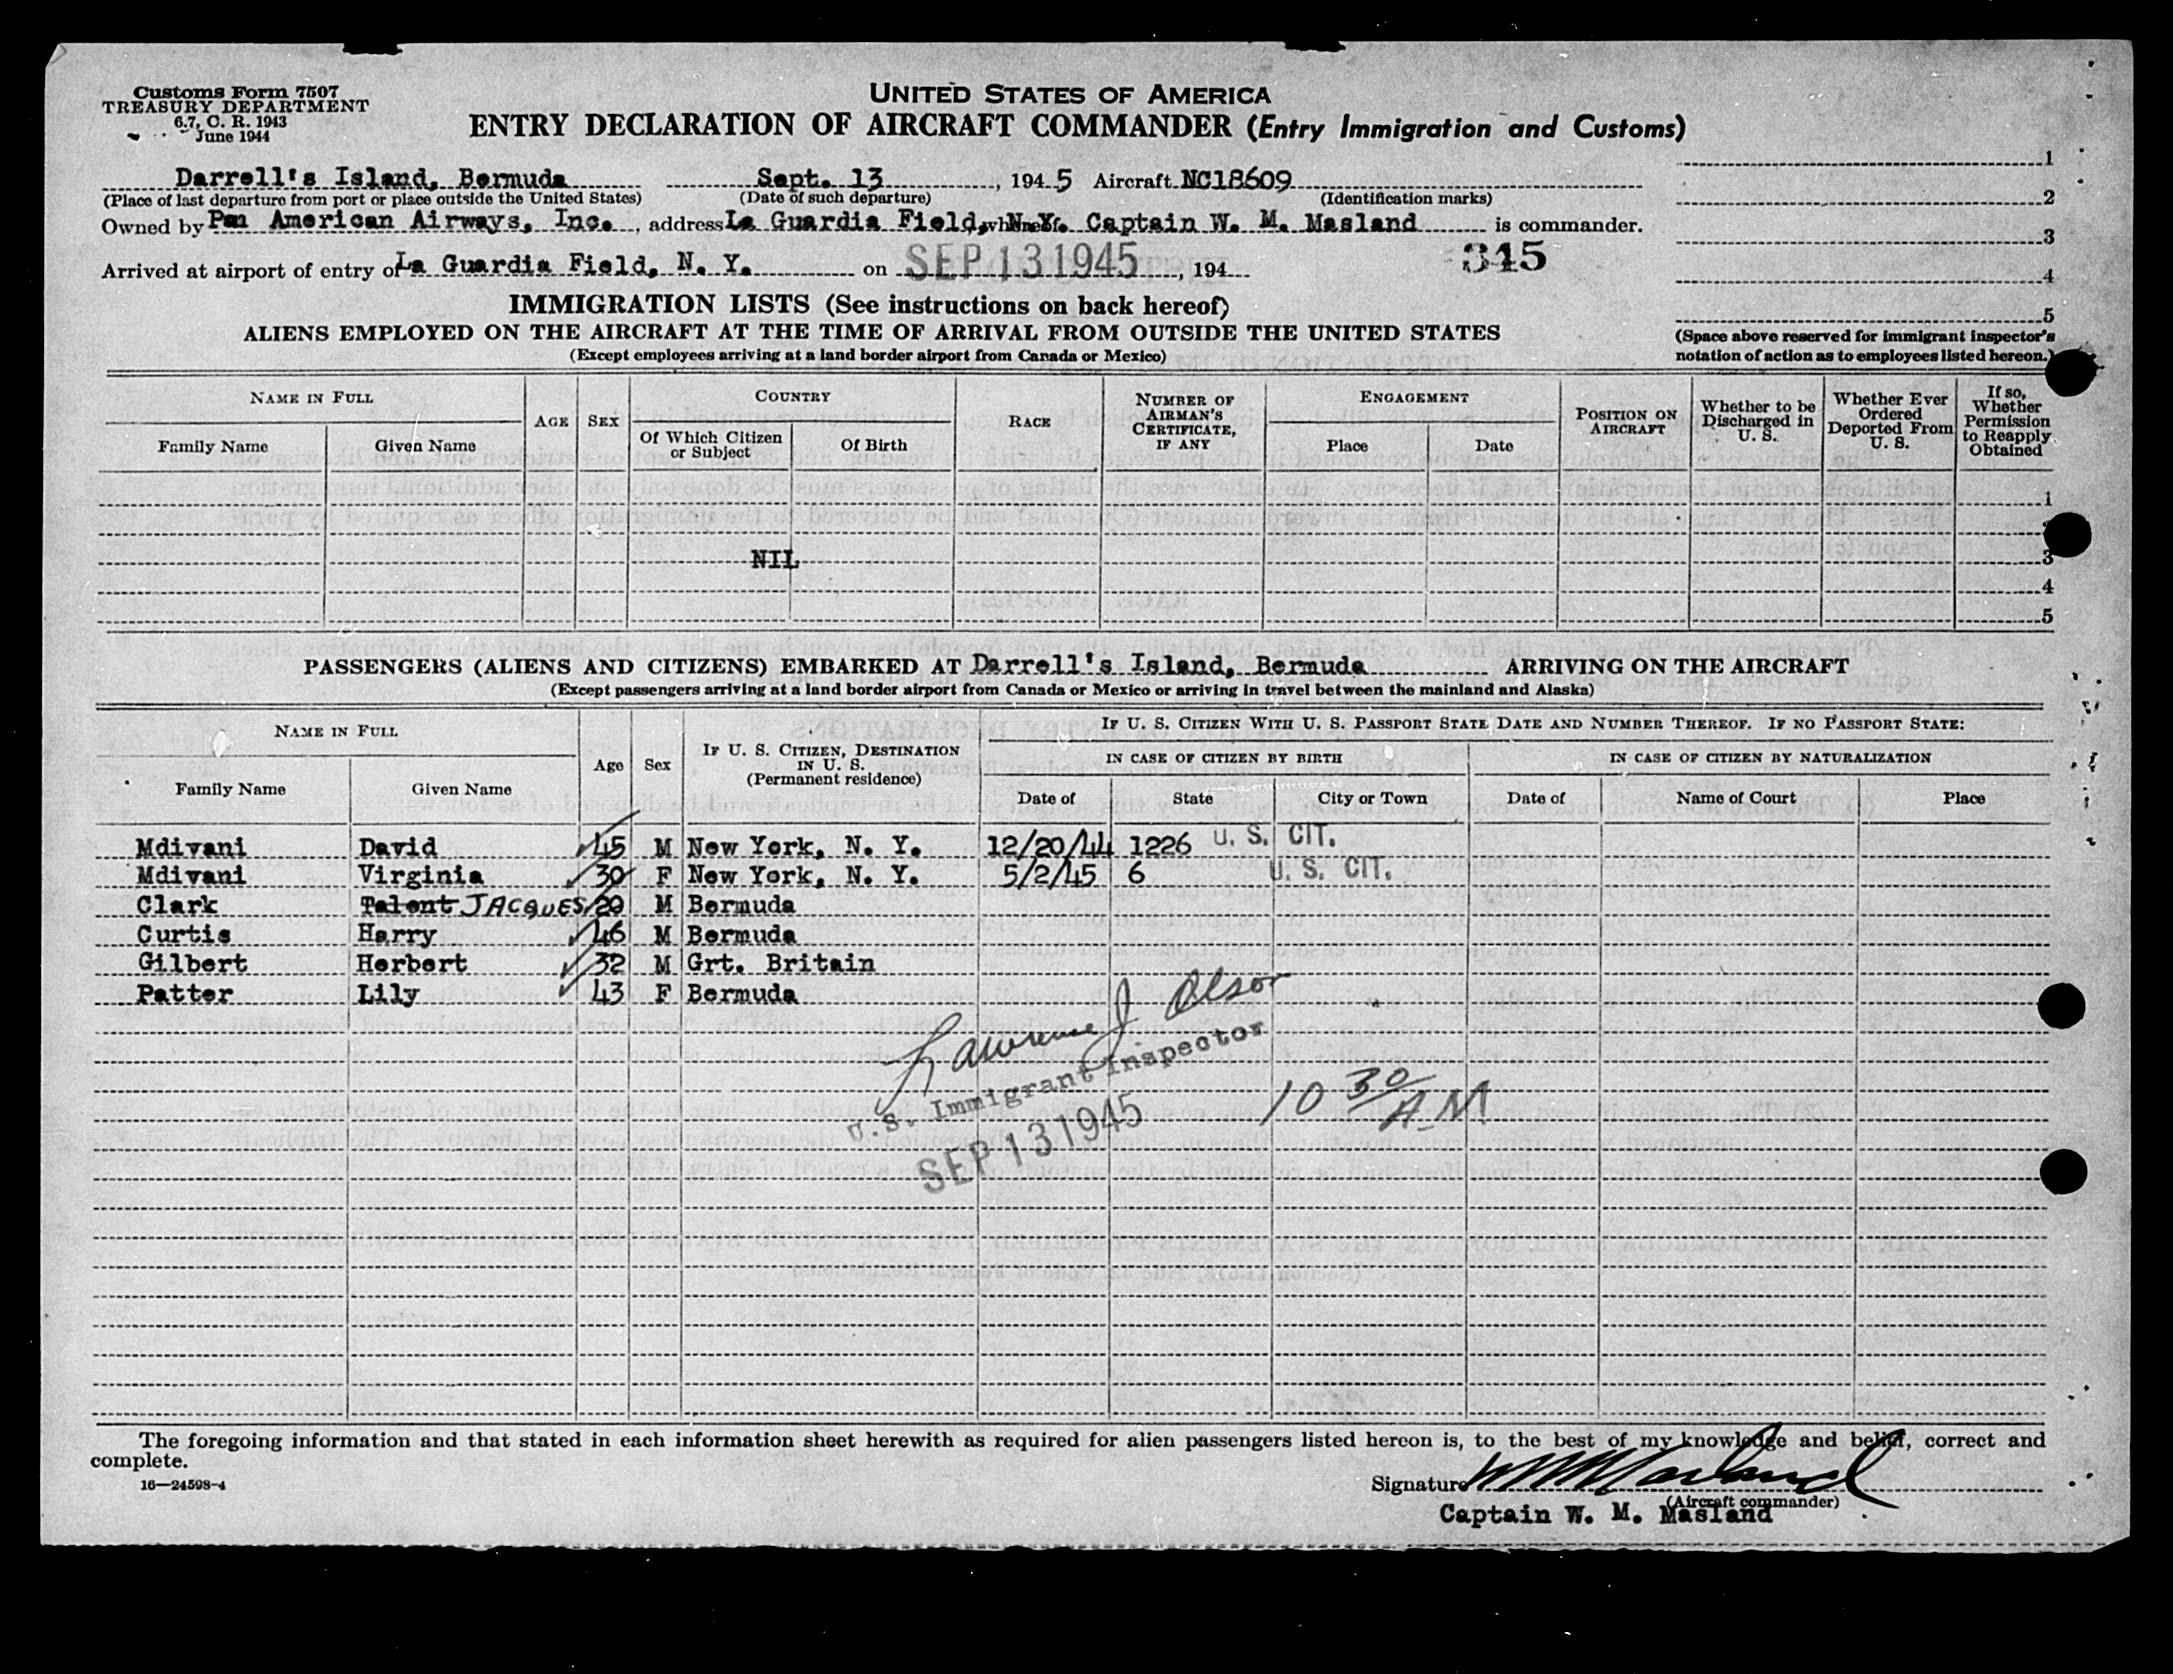 Customs Form 7507
TREASURY DEPARTMENT
6.7, C. R. 1943
June 1944
UNITED STATES OF AMERICA
ENTRY DECLARATION OF AIRCRAFT COMMANDER (Entry Immigration and Customs)
Darrell's Island, Bermuda Sept. 13, 1945 Aircraft NC18609
(Place of last departure from port or place outside the United States) (Date of such departure) (Identification marks)
Owned by Pan American Airways, Inc., address La Guardia Field, N.Y. whereof Captain W. M. Masland is commander.
Arrived at airport of entry of La Guardia Field, N. Y. on SEP 13 1945, 194
345
1
2
3
4
5
(Space above reserved for immigrant inspector's notation of action as to employees listed hereon.)
IMMIGRATION LISTS (See instructions on back hereof)
ALIENS EMPLOYED ON THE AIRCRAFT AT THE TIME OF ARRIVAL FROM OUTSIDE THE UNITED STATES
(Except employees arriving at a land border airport from Canada or Mexico)
NAME IN FULL
Family Name Given Name
AGE SEX
COUNTRY
Of Which Citizen or Subject Of Birth
RACE
NUMBER OF AIRMAN'S CERTIFICATE, IF ANY
ENGAGEMENT
Place Date
POSITION ON AIRCRAFT
Whether to be Discharged in U. S.
Whether Ever Ordered Deported From U. S.
If so, Whether Permission to Reapply Obtained
1
NIL 3
4
5
PASSENGERS (ALIENS AND CITIZENS) EMBARKED AT Darrell's Island, Bermuda ARRIVING ON THE AIRCRAFT
(Except passengers arriving at a land border airport from Canada or Mexico or arriving in travel between the mainland and Alaska)
NAME IN FULL
Family Name Given Name
Age Sex
IF U. S. CITIZEN, DESTINATION IN U. S. (Permanent residence)
IF U. S. CITIZEN WITH U. S. PASSPORT STATE DATE AND NUMBER THEREOF. IF NO PASSPORT STATE:
IN CASE OF CITIZEN BY BIRTH IN CASE OF CITIZEN BY NATURALIZATION
Date of State City or Town Date of Name of Court Place
Mdivani David 45 M New York, N. Y. 12/20/44 1226 U. S. CIT.
Mdivani Virginia 30 F New York, N. Y. 5/2/45 6 U. S. CIT.
Clark Talent JACQUES 20 M Bermuda
Curtis Harry 46 M Bermuda
Gilbert Herbert 32 M Grt. Britain
Patter Lily 43 F Bermuda
Lawrence J Olson
U.S. Immigrant Inspector
SEP 13 1945
10 30 A.M
The foregoing information and that stated in each information sheet herewith as required for alien passengers listed hereon is, to the best of my knowledge and belief, correct and
complete.
16—24598-4
Signature W M Masland
(Aircraft commander)
Captain W. M. Masland